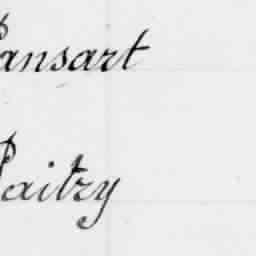 Pansart
Paitry